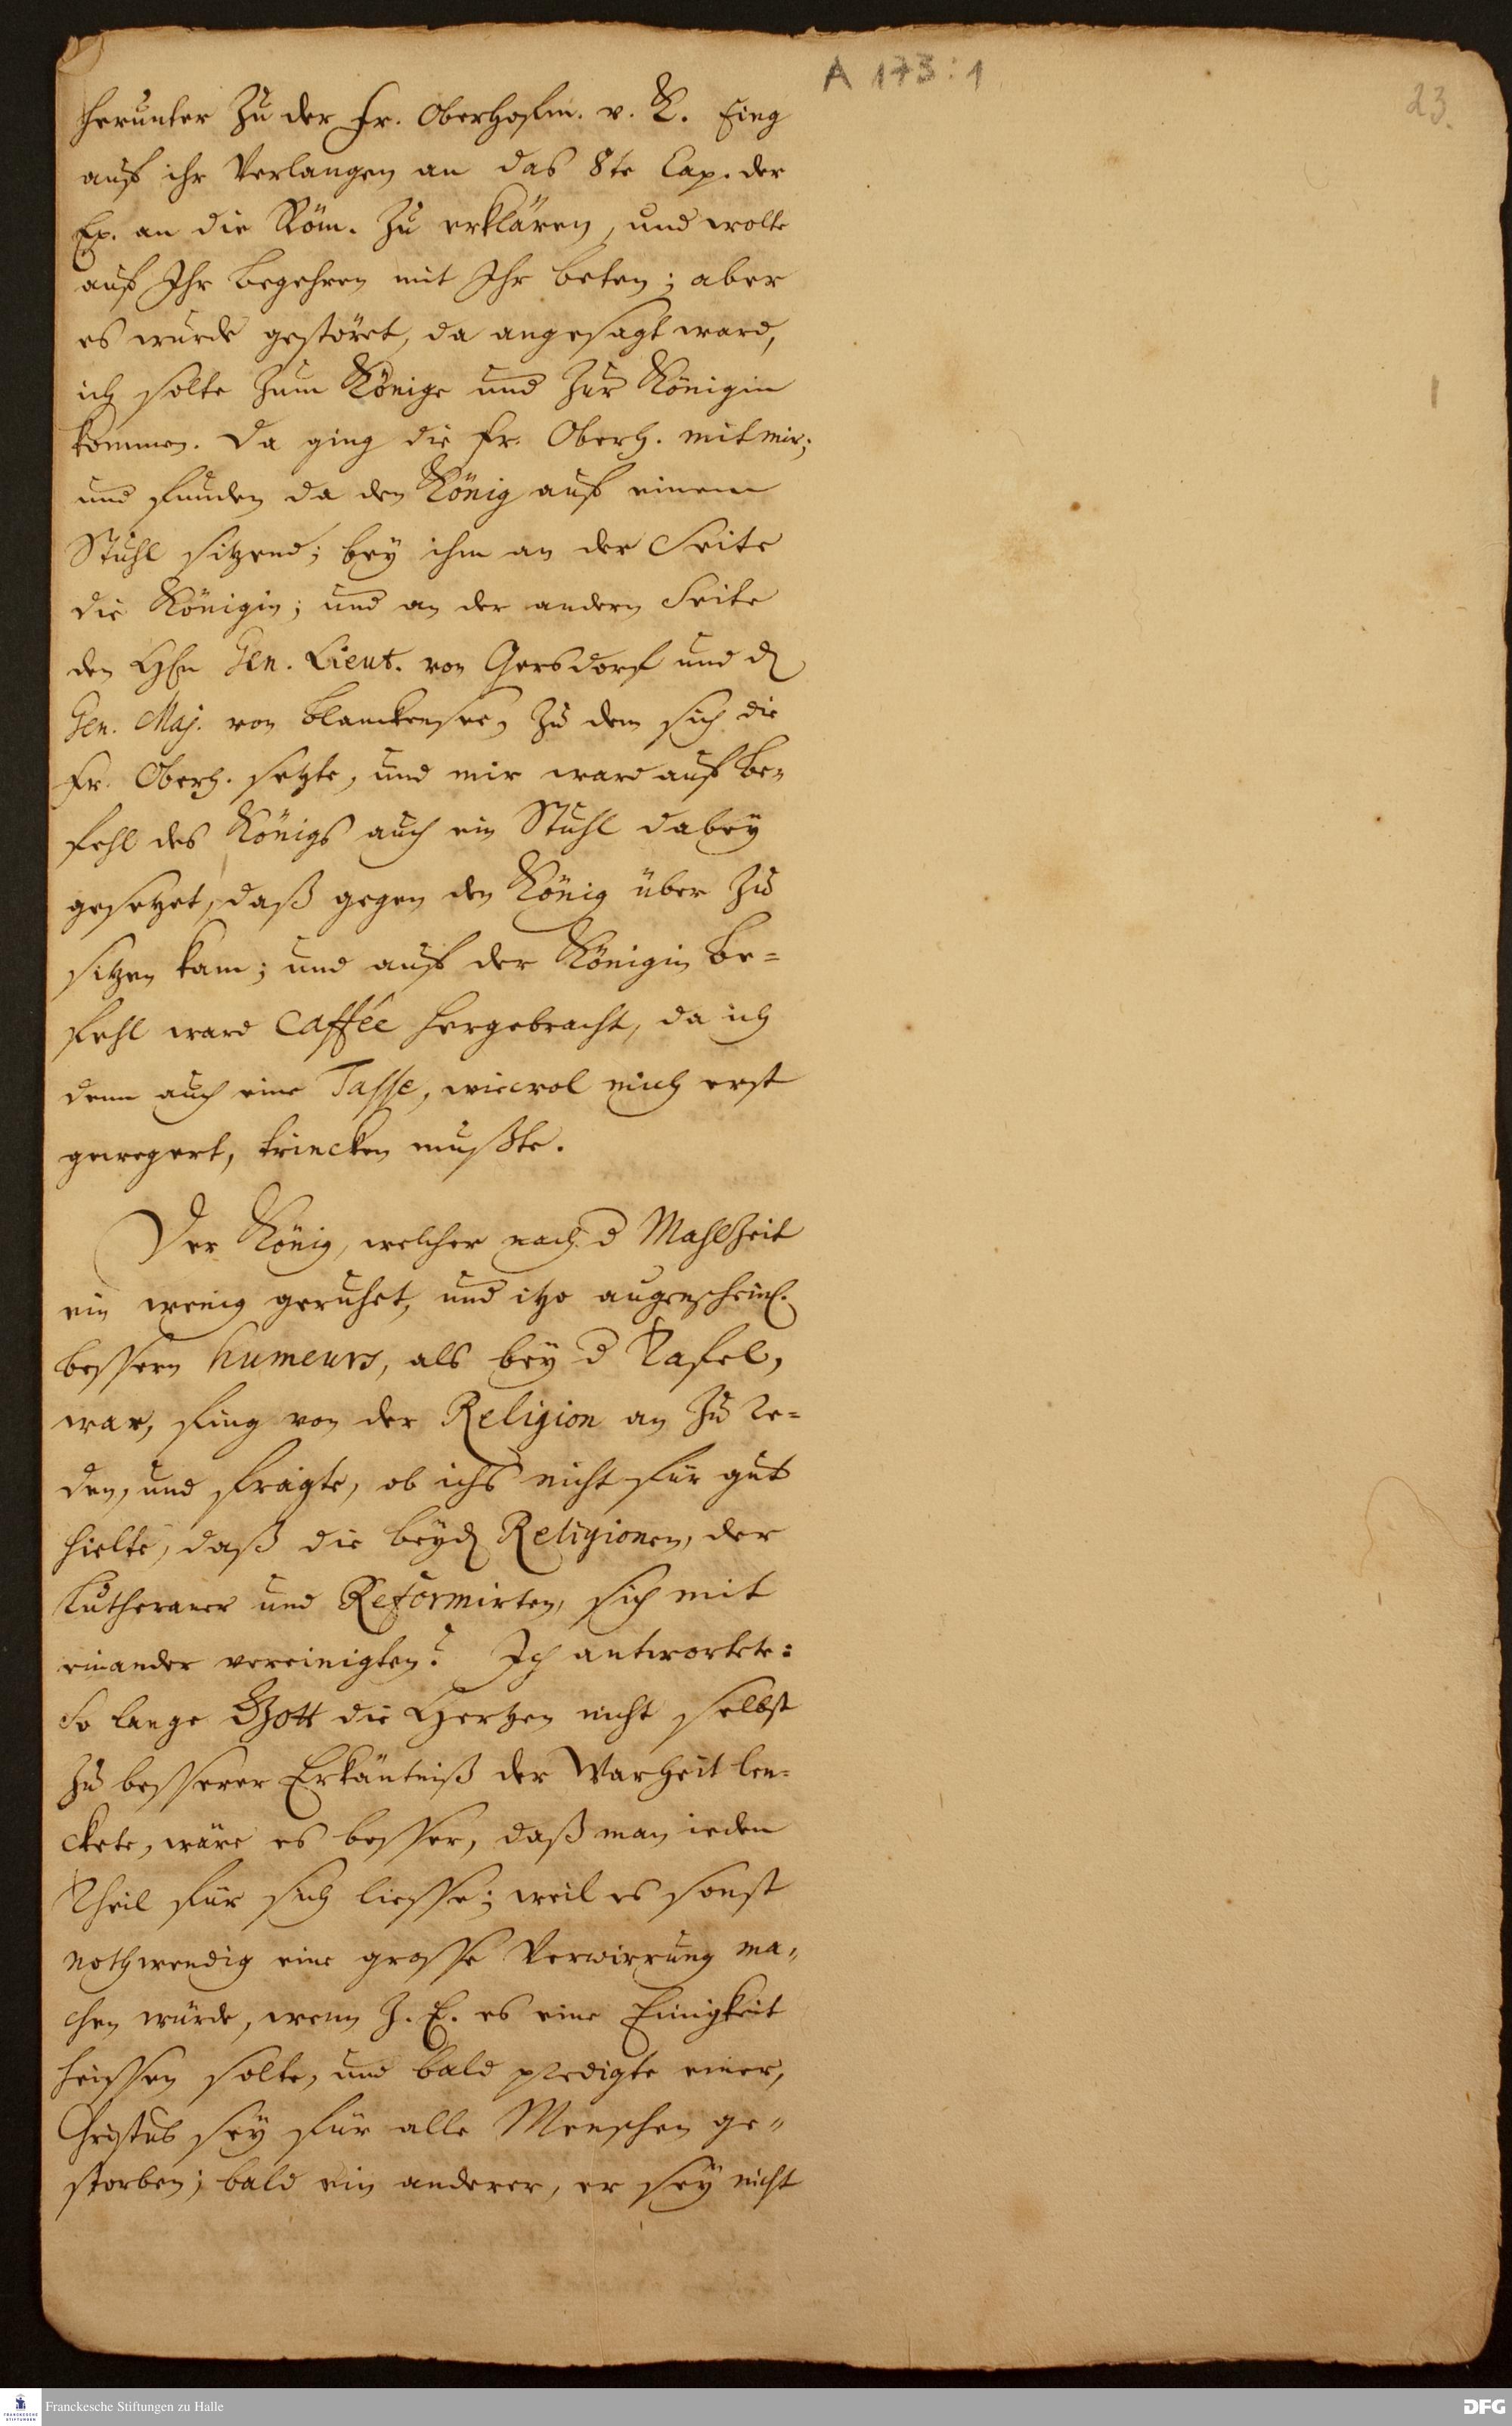 A 173:1
23.
herunter zu der Fr. Oberhofm. v. K. Fieng
auf ihr Verlangen an das 8te Cap. der
Ep. an die Röm. zu erklären, und wolte
auf Ihr begehren mit Ihr beten; aber
es wurde gestöret, da angesagt ward,
ich solte zum Könige und zur Königin
kommen. Da ging die Fr. Oberh. mit mir;
und funden da den König auf einem
Stuhl sitzend; bey ihm an der Seite
die Königin; und an der andern Seite
den Hln Gen. Lieut. von Gersdorf und d
Gen. Maj. von Blanckensee, zu dem sich die
Fr. Oberh. setzte, und mir ward auf Be-
fehl des Königs auch ein Stuhl dabey
gesetzet, daß gegen den König über zu
sitzen kam; und auf der Königin Be=
fehl ward Caffée hergebracht, da ich
denn auch eine Tasse, wiewol mich erst
gewegert, trincken mußte.
Der König, welcher nach d Mahlzeit
ein wenig geruhet, und itzo augenscheinl.
bessern humeurs, als bey d Tafel,
war, fing von der Religion an zu re=
den, und fragte, ob ichs nicht für gut
hielte, daß die beyd Religionen, der
Lutheraner und Reformirten, sich mit
einander vereinigten? Ich antwortete:
So lange Gott die Hertzen nicht selbst
zu besserer Erkäntniß der Warheit len=
ckete, wäre es besser, daß man ieden
Theil für sich liesse; weil es sonst
nothwendig eine grosse Verwirrung ma-
chen würde, wenn z. E. es eine Einigkeit
heissen solte, und bald predigte einer,
Christus sey für alle Menschen ge-
storben; bald ein anderer, er sey nicht
Franckesche Stiftungen zu Halle
DFG